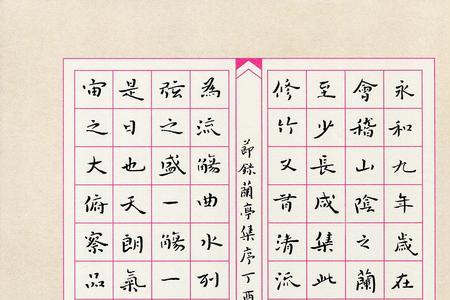 永和九年歲在
會稽山陰之蘭
至少長咸集此
修竹又有清流
節錄蘭亭集序丁酉
為流觴曲水列
弦之盛一觴一
是日也天朗氣
宙之大俯察品